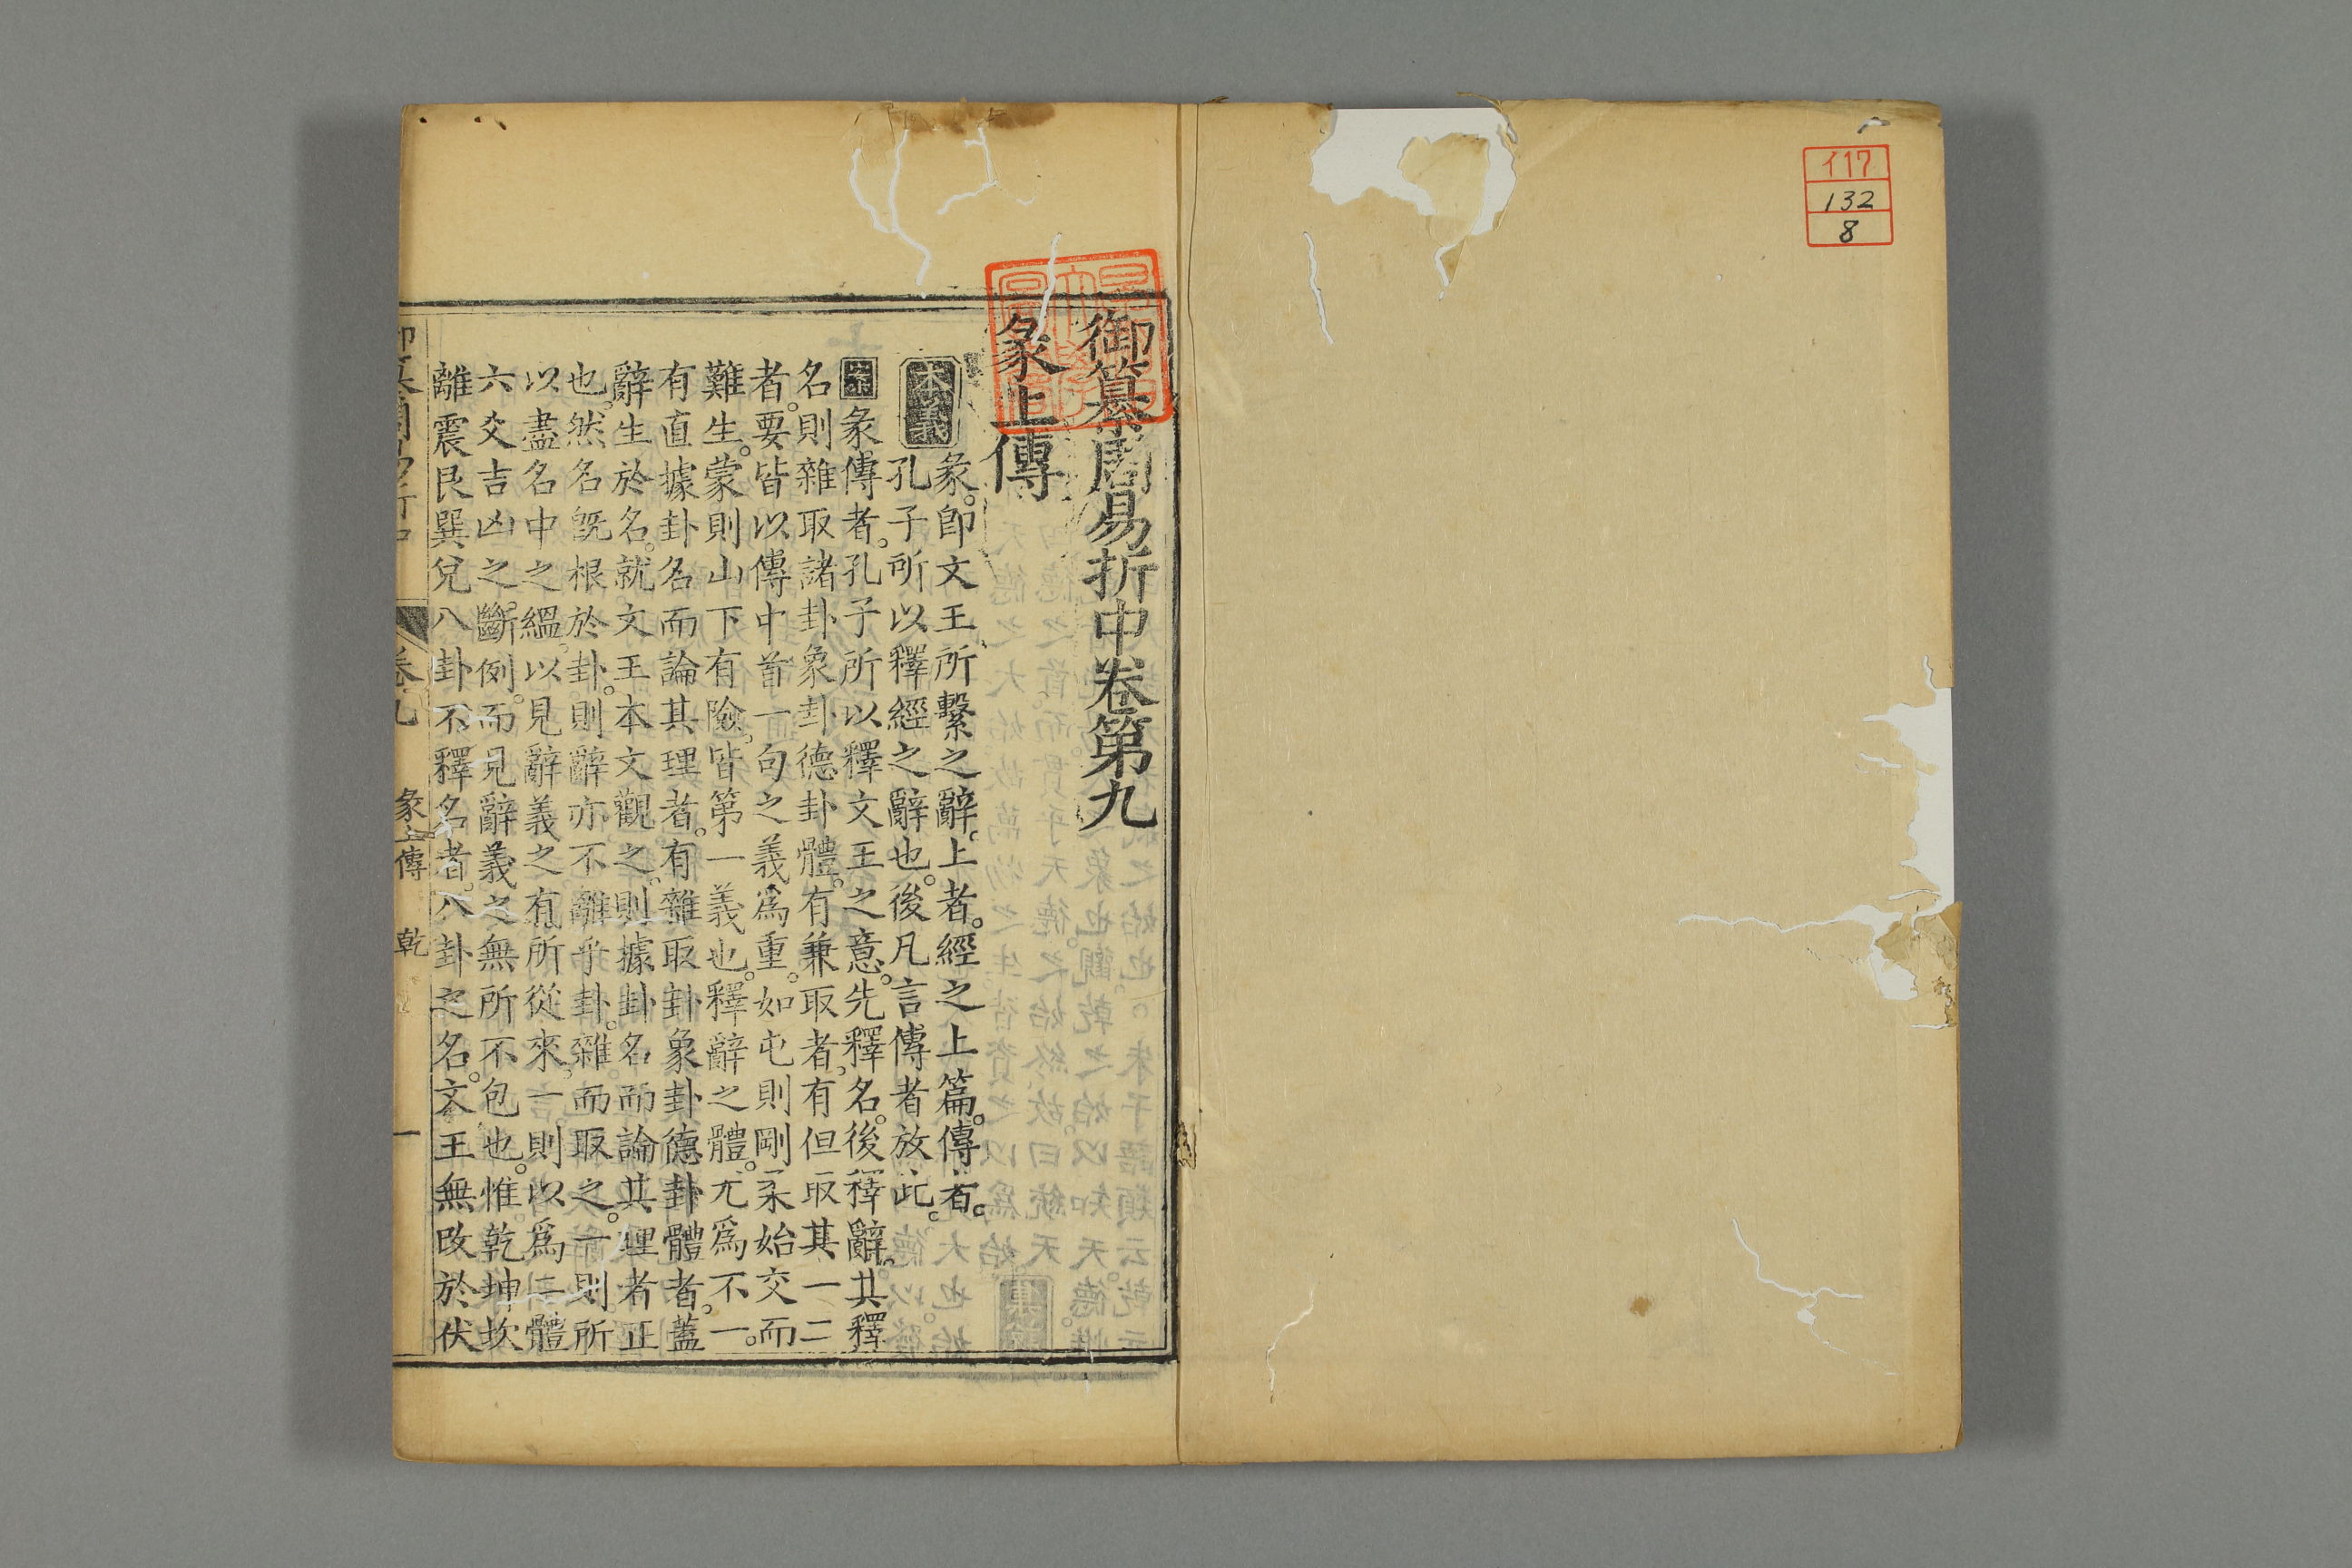 117
132
8
御纂周易折中卷第九
彖上傳
本義
彖。即文王所繫之辭。上者。經之上篇。傳者。
孔子所以釋經之辭也。後凡言傳者放此。
案彖傳者。孔子所以釋文王之意。先釋名。後釋辭。其釋
名則雜取諸卦象卦德卦體。有兼取者。有但取其一二
者。要皆以傳中首一句之義爲重。如屯則剛柔始交而
難生。蒙則山下有險。皆第一義也。釋辭之體。尤爲不一。
有直據卦名而論其理者。有雜取卦象卦德卦體者。蓋
辭生於名。就文王本文觀之。則據卦名而論其理者正
也。然名旣根於卦。則辭亦不離乎卦。雜而取之。一則所
以盡名中之縕。以見辭義之有所從來。一則以爲二體
六爻吉凶之斷例。而見辭義之無所不包也。惟乾坤坎
離震艮巽兌八卦不釋名者。八卦之名。文王無改於伏
卷九
彖上傳
乾
一